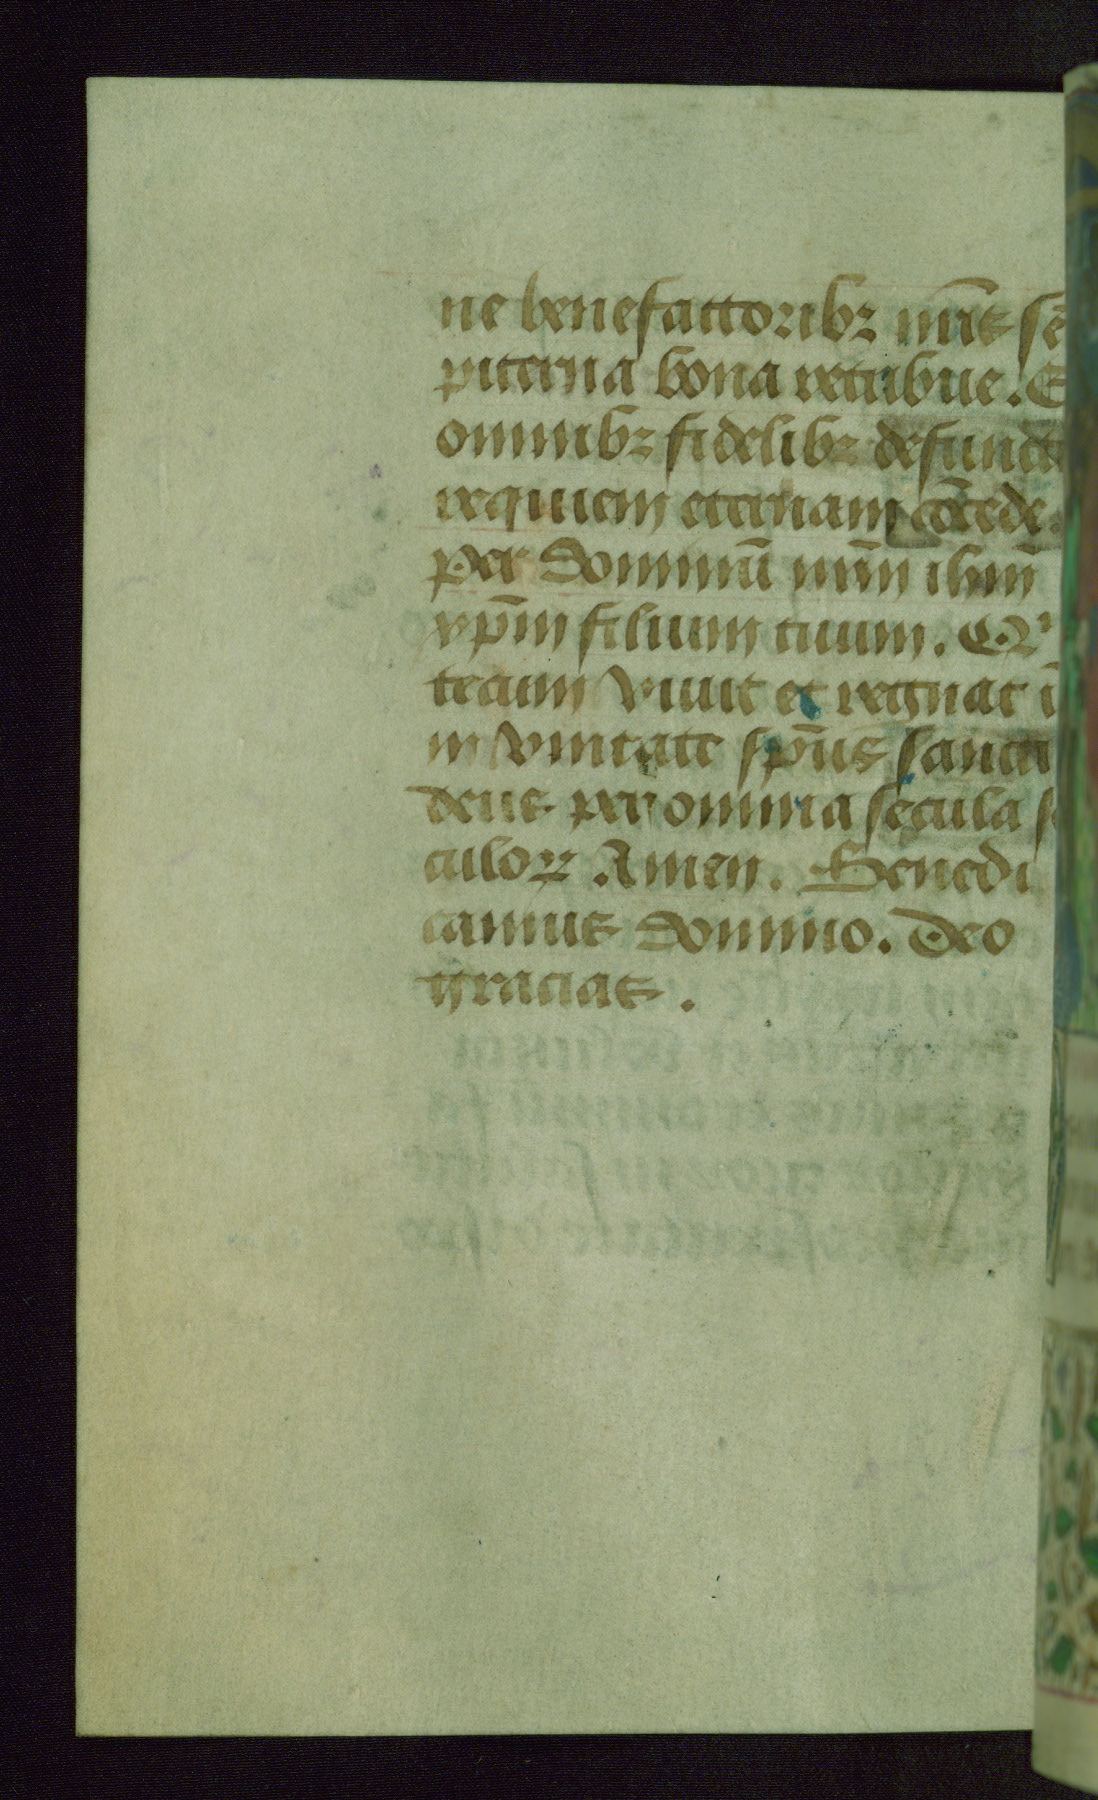 ne benefactoribꝫ nr̄is sē
piterna bona retribue. E
omnibꝫ fidelibꝫ defunct
requiem eternam cōcede.
Per dominū nr̄m ihm̄
xp̄m filium tuum. Qⁱ
tecum viuit et regnat ī
in vnitate sp̄ūs sancti
deus per omnia secula s
culoꝝ. Amen. Benedi
camus domino. Deo
gracias.